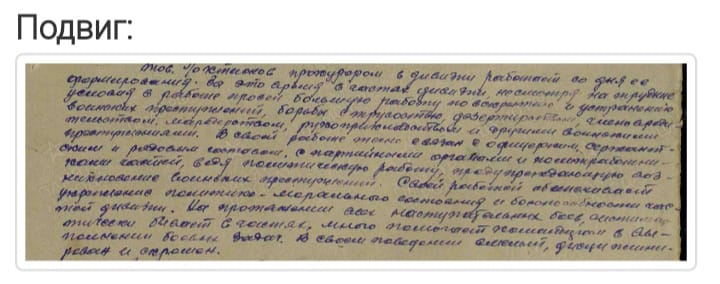 Подвиг:
тов. прокурором в дивизии работает со дня ее
формирования. За это время в частях дивизии, несмотря на трудные
условия в работе провел большую работу по вскрытию и устранению
воинских преступлений, борьбы с трусостью, дезертирством, членовреди
тельством, мародерством, и другими воинскими
преступлениями. В своей работе тесно связан с офицерским, сержант-
ским и рядовым составом, с партийными органами и политработни-
ками частей, ведя политическую работу, предупреждающую воз-
никновение воинских преступлений. Своей работой обеспечивает
укрепление политико-морального состояния и боеспособности час-
тей дивизии. На протяжении всех наступательных боев, система
тически бывает в частях, много помогает командирам в вы-
полнении боевых задач. В своем поведении дисциплини-
рован и скромен.